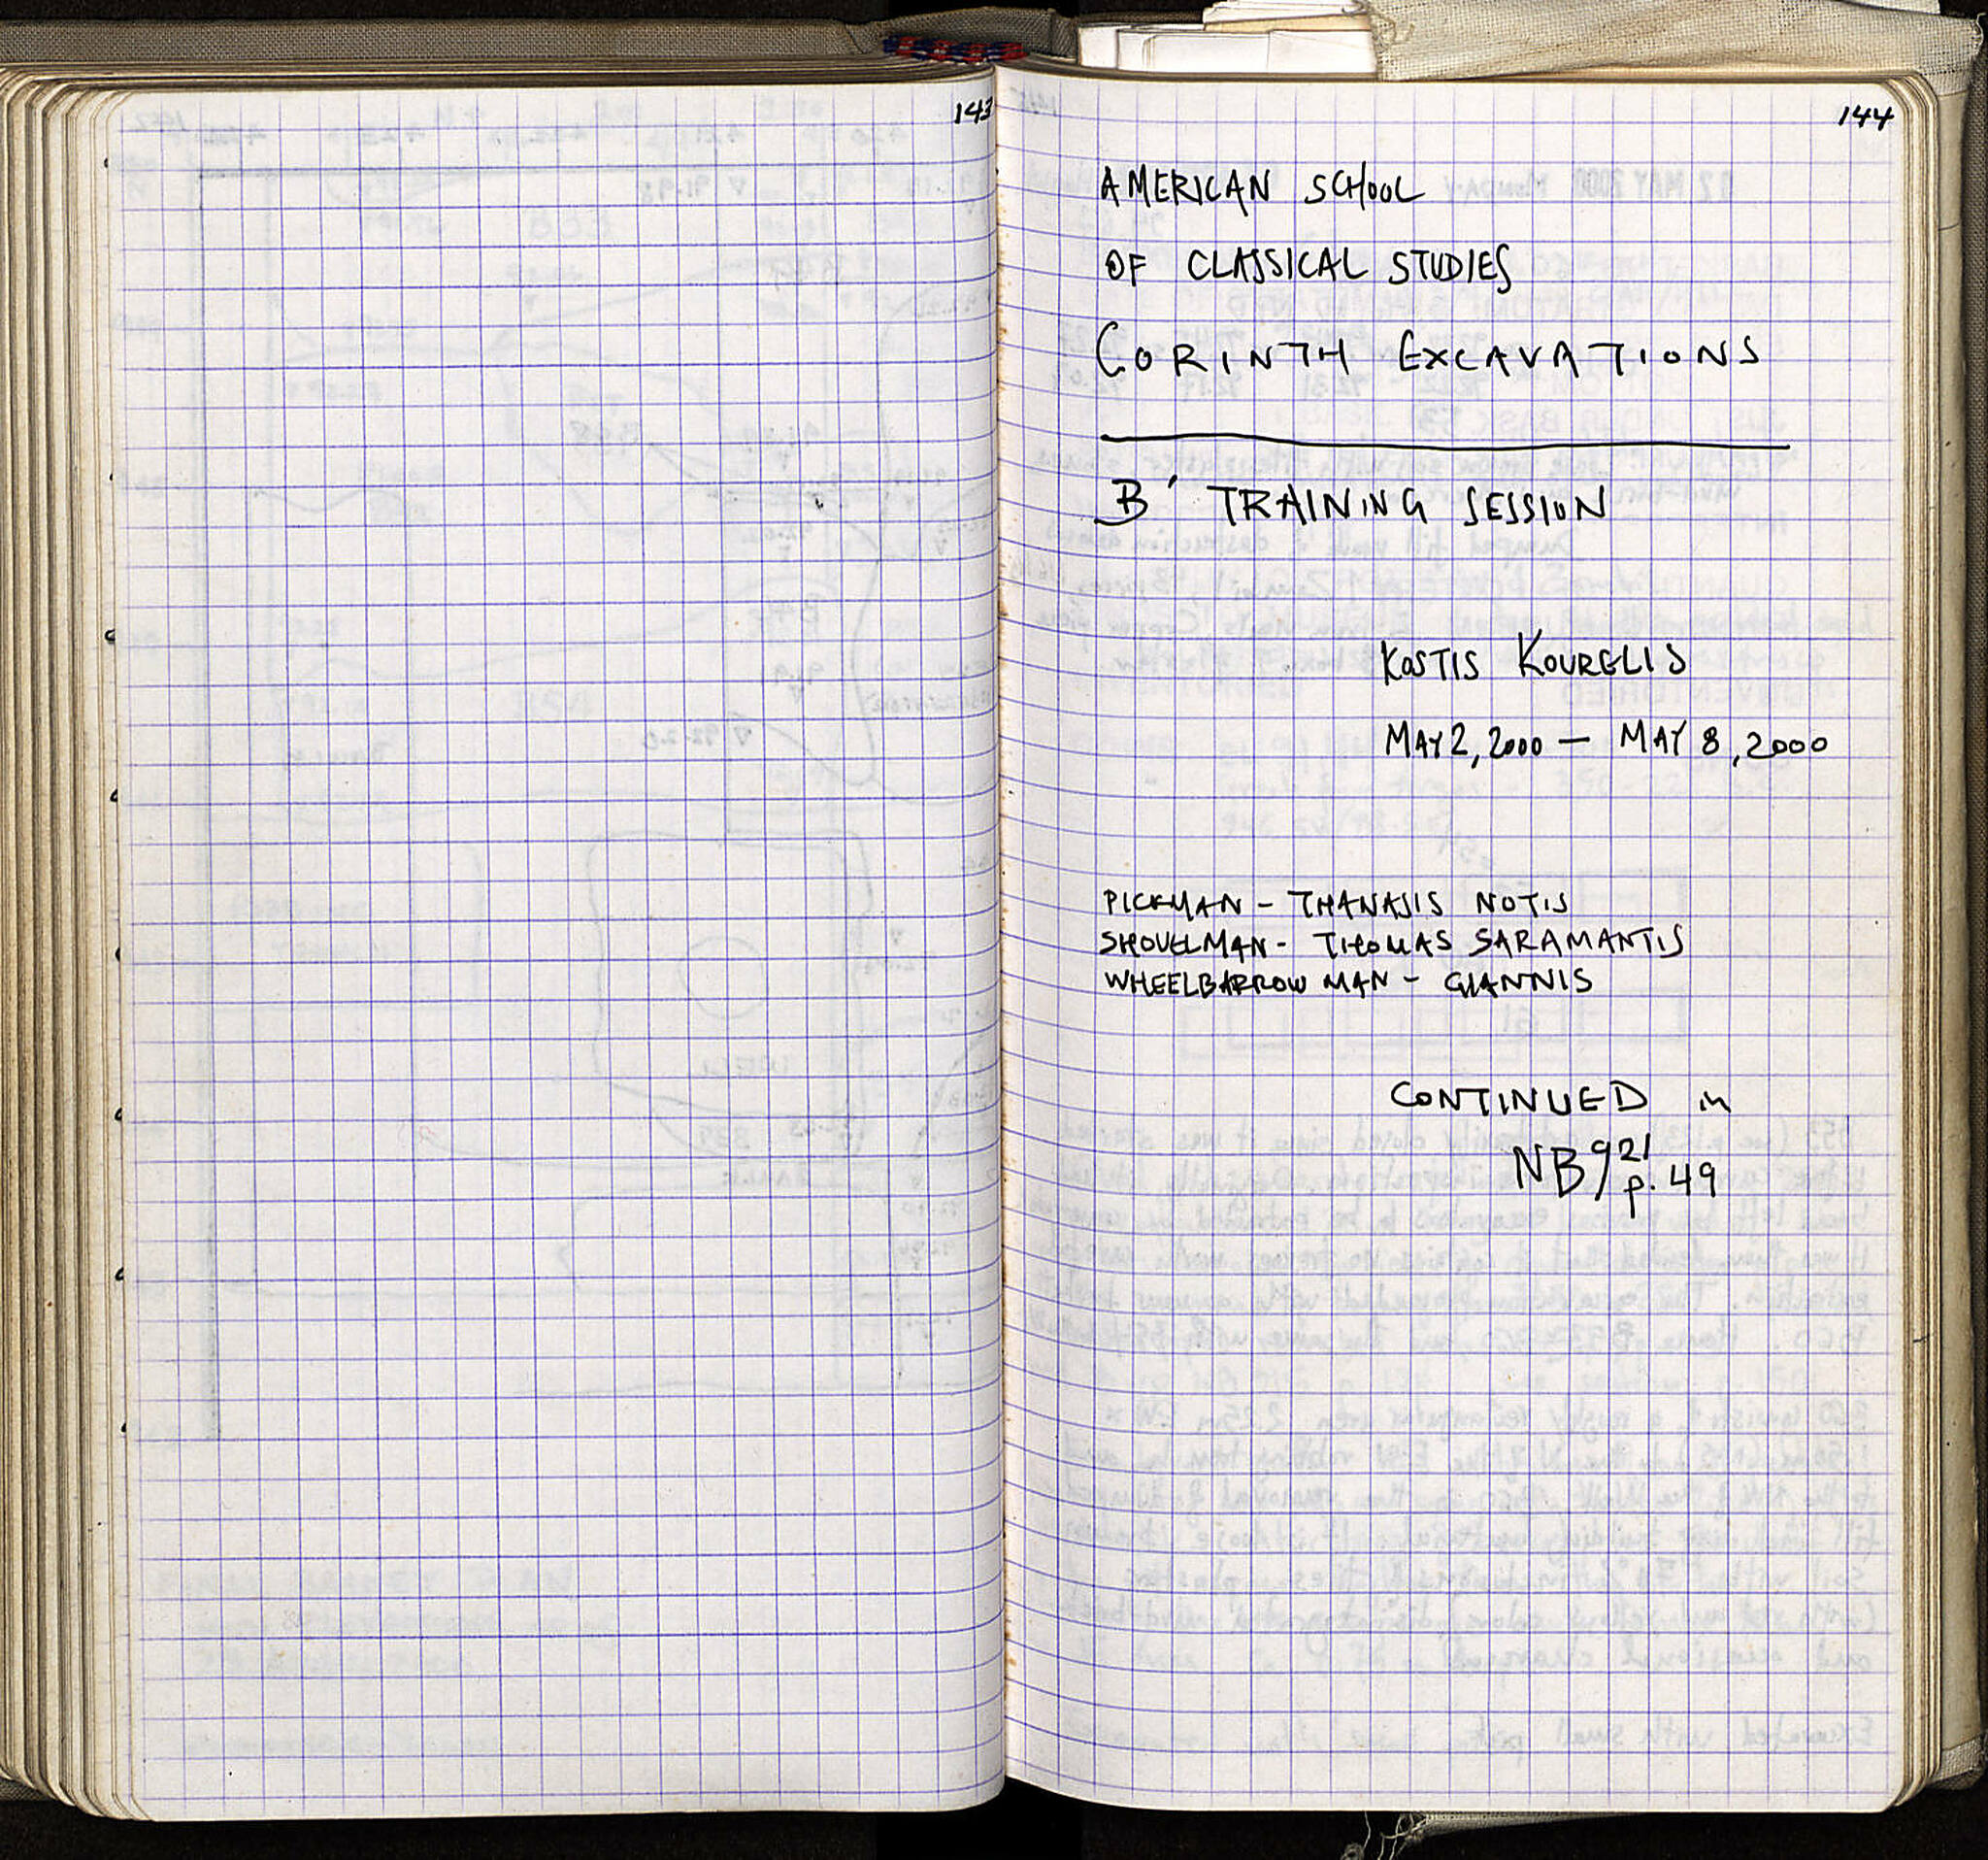 143
144
AMERICAN SCHOOL
OF CLASSICAL STUDIES
CORINTH EXCAVATIONS
B' TRAINING SESSION
KOSTIS KOURELIS
MAY 2, 2000 — MAY 8, 2000
PICKMAN - THANASIS NOTIS
SHOVELMAN - THOMAS SARAMANTIS
WHEELBARROW MAN - GIANNIS
CONTINUED in
NB 921
p. 49